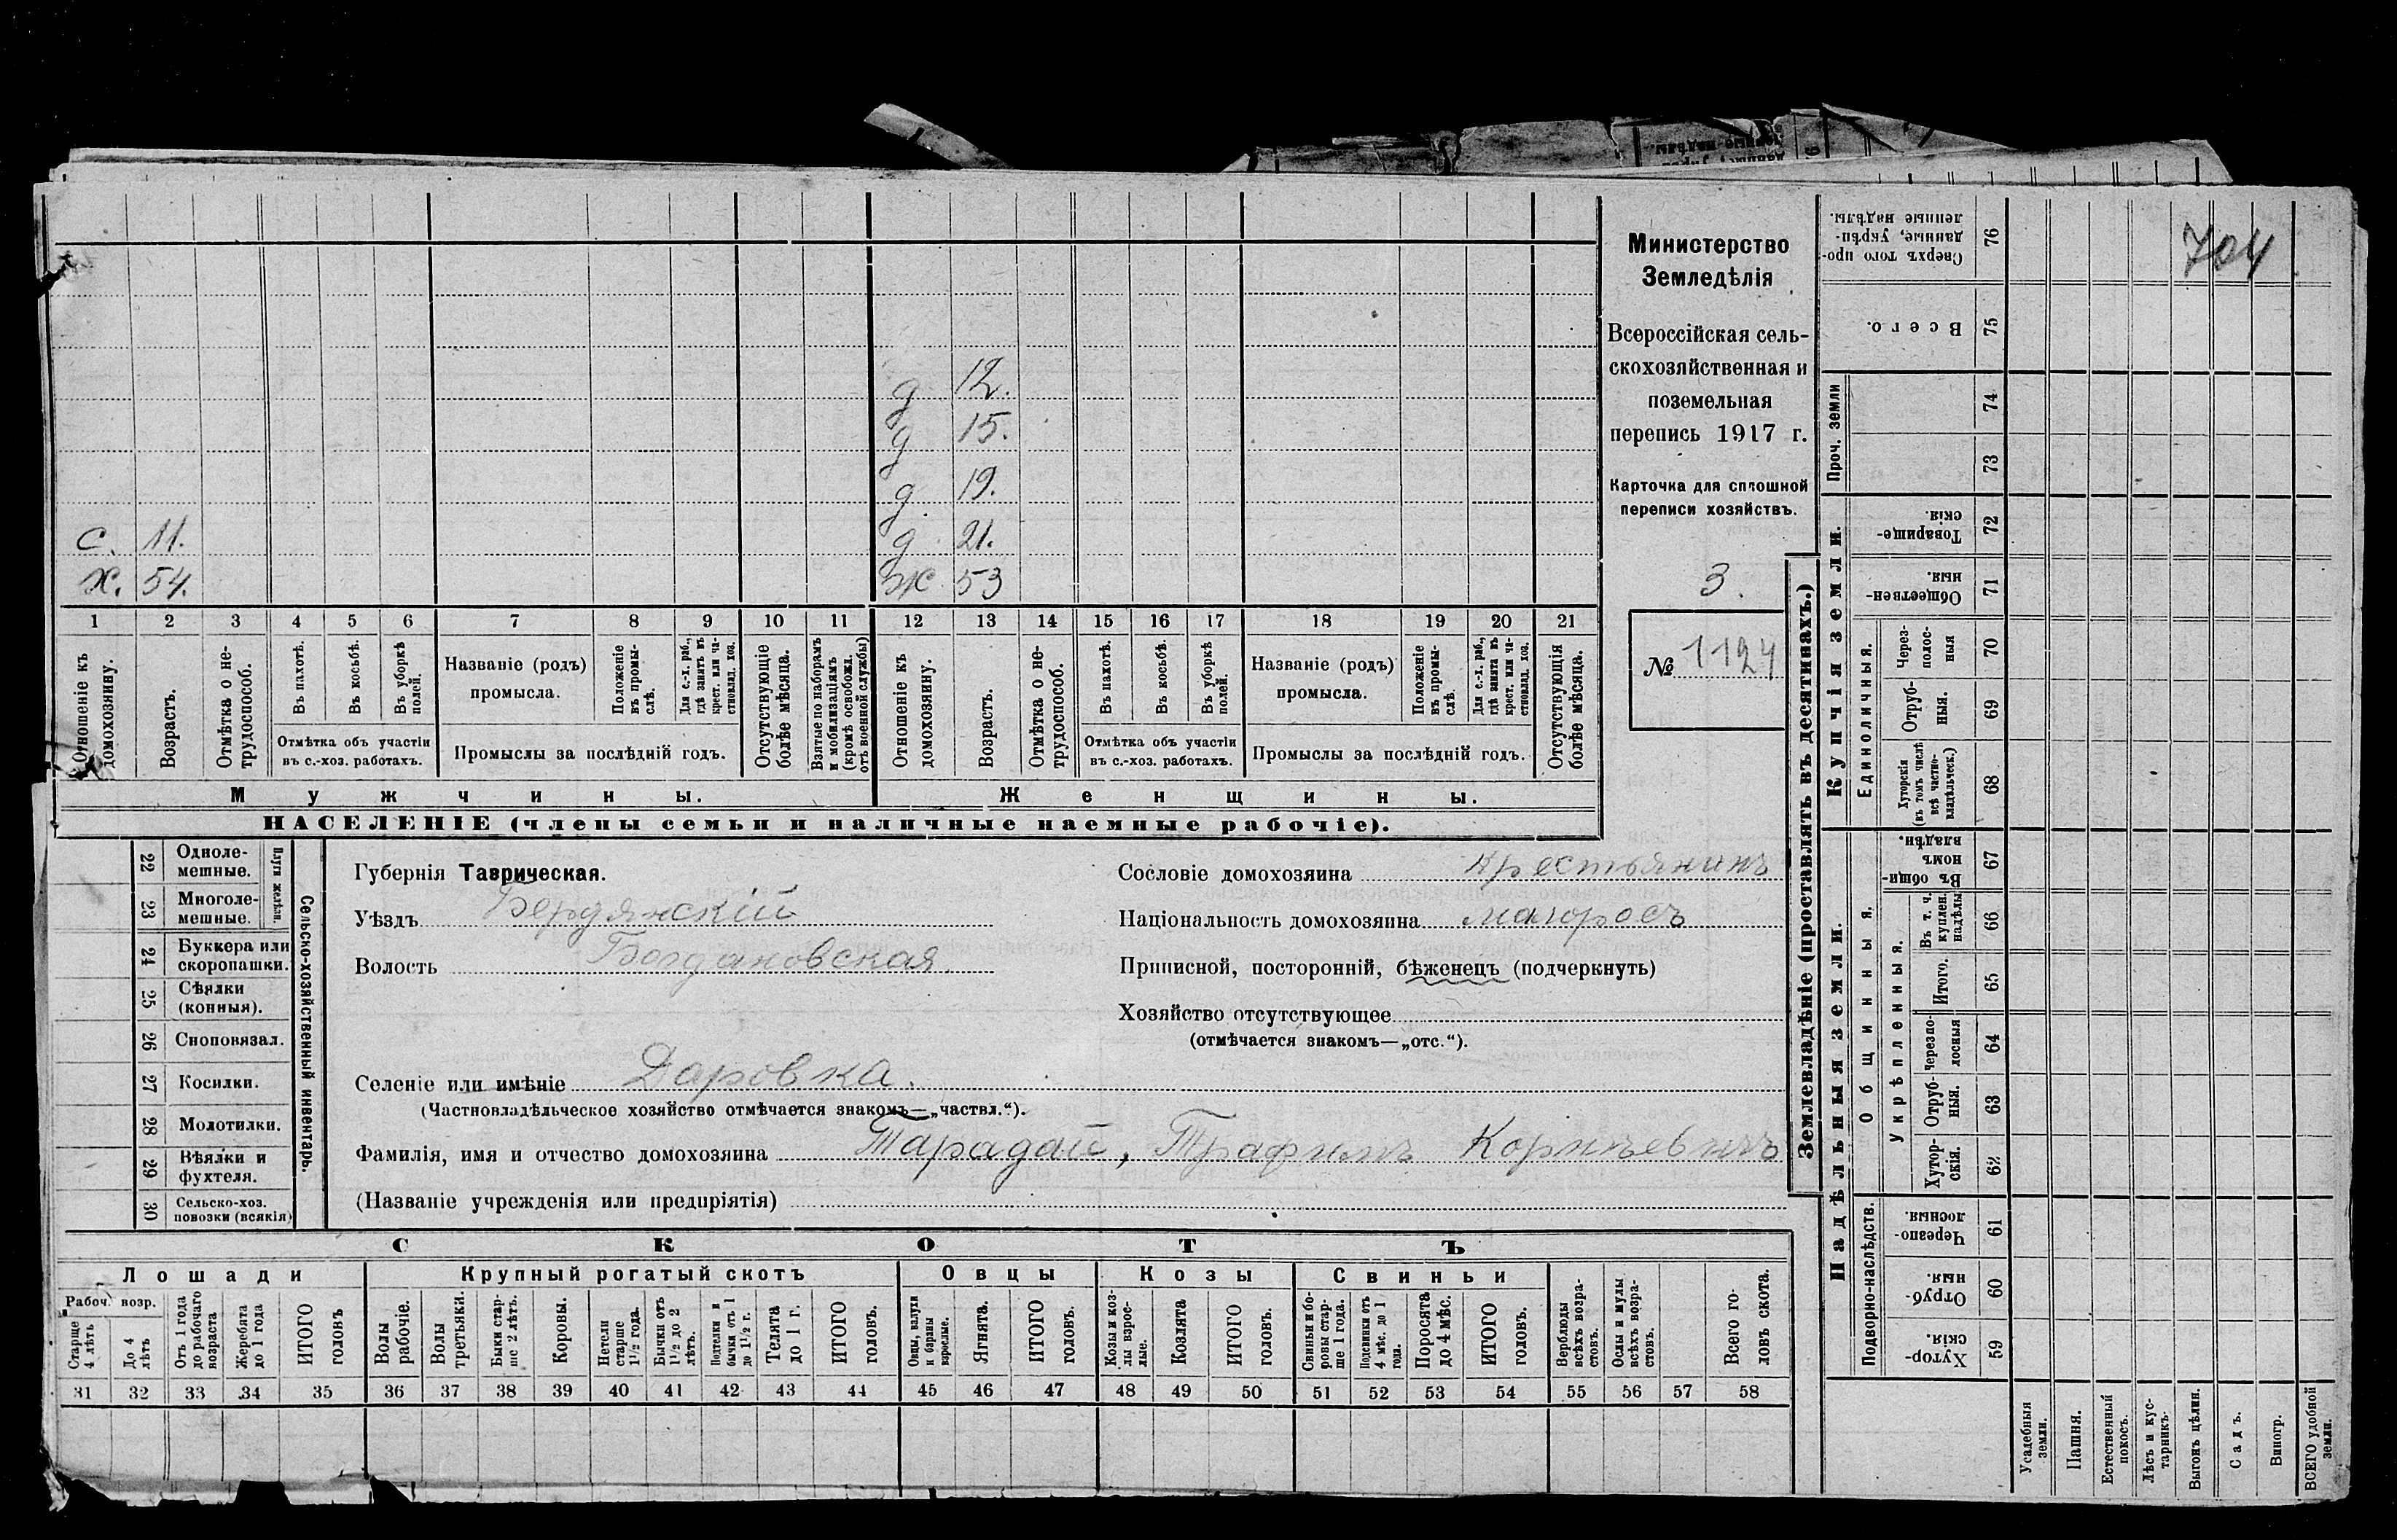 704
Министерство
Земледѣлія
Всероссійская сель-
скохозяйственная и
поземельная
перепись 1917 г.
Карточка для сплошной
переписи хозяйствъ.
3.
№ 1124
д 12.
д 15.
д. 19.
с. 11. д. 21.
х. 54. ж 53
1 2 3 4 5 6 7 8 9 10 11 12 13 14 15 16 17 18 19 20 21
Отношеніе къ домохозяину.
Возрастъ.
Отмѣтка о не-трудоспособ.
Въ пахотѣ.
Въ косьбѣ.
Въ уборкѣ полей.
Отмѣтка объ участіи
въ с.-хоз. работахъ.
Названіе (родъ)
промысла.
Положеніе въ промы-слѣ.
Для с.-х. раб., гдѣ занятъ въ крест. или ча-стновлад. хоз.
Промыслы за послѣдній годъ.
Отсутствующіе болѣе мѣсяца.
Взятые по наборамъ и мобилизаціямъ (кромѣ освобожд. отъ военной службы)
Отношеніе къ домохозяину.
Возрастъ.
Отмѣтка о не-трудоспособ.
Въ пахотѣ.
Въ косьбѣ.
Въ уборкѣ полей.
Отмѣтка объ участіи
въ с.-хоз. работахъ.
Названіе (родъ)
промысла.
Положеніе въ промы-слѣ.
Для с.-х. раб., гдѣ занята въ крест. или ча-стновлад. хоз.
Промыслы за послѣдній годъ.
Отсутствующія болѣе мѣсяца.
Мужчины. Женщины.
НАСЕЛЕНІЕ (члены семьи и наличные наемные рабочіе).
Сельско-хозяйственный инвентарь.
Плуги желѣзн.
22 Однолемешные.
23 Многолемешные.
24 Буккера или скоропашки.
25 Сѣялки (конныя).
26 Сноповязал.
27 Косилки.
28 Молотилки.
29 Вѣялки и фухтеля.
30 Сельско-хоз. повозки (всякія)
Губернія Таврическая.
Уѣздъ Бердянскій
Волость Богдановская.
Сословіе домохозяина крестьянинъ
Національность домохозяина малоросъ
Приписной, посторонній, бѣженецъ (подчеркнуть)
Хозяйство отсутствующее
(отмѣчается знакомъ—„отс.“).
Селеніе или имѣніе Даровка.
(Частновладѣльческое хозяйство отмѣчается знакомъ—„частвл.“).
Фамилія, имя и отчество домохозяина Тарадай, Трафимъ Корнѣевичъ
(Названіе учрежденія или предпріятія)
СКОТЪ
Лошади Крупный рогатый скотъ Овцы Козы Свиньи
Рабоч. возр.
Старше 4 лѣтъ
До 4 лѣтъ
Отъ 1 года до рабочаго возраста
Жеребята до 1 года
ИТОГО головъ
Волы рабочіе.
Волы третьяки.
Быки стар-ше 2 лѣтъ.
Коровы.
Нетели старше 1 1/2 года.
Бычки отъ 1 1/2 до 2 лѣтъ.
Подтелки и бычки отъ 1 до 1 1/2 г.
Телята до 1 г.
ИТОГО головъ.
Овцы, валухи и бараны взрослые.
Ягнята.
ИТОГО головъ.
Козы и коз-лы взрос-лые.
Козлята
ИТОГО головъ.
Свиньи и бо-ровы стар-ше 1 года.
Подсвинки отъ 4 мѣс. до 1 года.
Поросята до 4 мѣс.
ИТОГО головъ.
Верблюды всѣхъ возра-стовъ.
Ослы и мулы всѣхъ возра-стовъ.
Всего го-ловъ скота.
31 32 33 34 35 36 37 38 39 40 41 42 43 44 45 46 47 48 49 50 51 52 53 54 55 56 57 58
Землевладѣніе (проставлять въ десятинахъ.)
Купчія земли.
Надѣльныя земли.
Проч. земли
Сверхъ того про-данные, укрѣп-ленные надѣлы. 76
Всего. 75
74
73
Товарище-скія. 72
Обществен-ныя. 71
Единоличныя.
Через-полос-ныя 70
Отруб-ныя. 69
Хуторскія (въ томъ числѣ всѣ частно-владѣльческ.) 68
Общинныя.
Въ общи-номъ владѣн. 67
Укрѣпленныя.
Въ т. ч. куплен. надѣлы 66
Итого. 65
Черезпо-лосныя 64
Отруб-ныя. 63
Хутор-скія. 62
Подворно-наслѣдств.
Черезпо-лосныя. 61
Отруб-ныя. 60
Хутор-скія. 59
Усадебныя земли.
Пашня.
Естественный покосъ.
Лѣсъ и кус-тарникъ.
Выгонъ цѣлин.
Садъ.
Виногр.
ВСЕГО удобной земли.